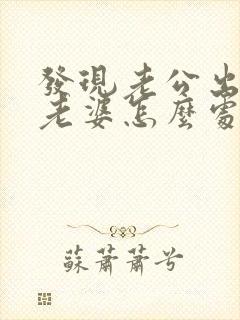 發現老公出
老婆怎麼處
蘇蕭蕭兮